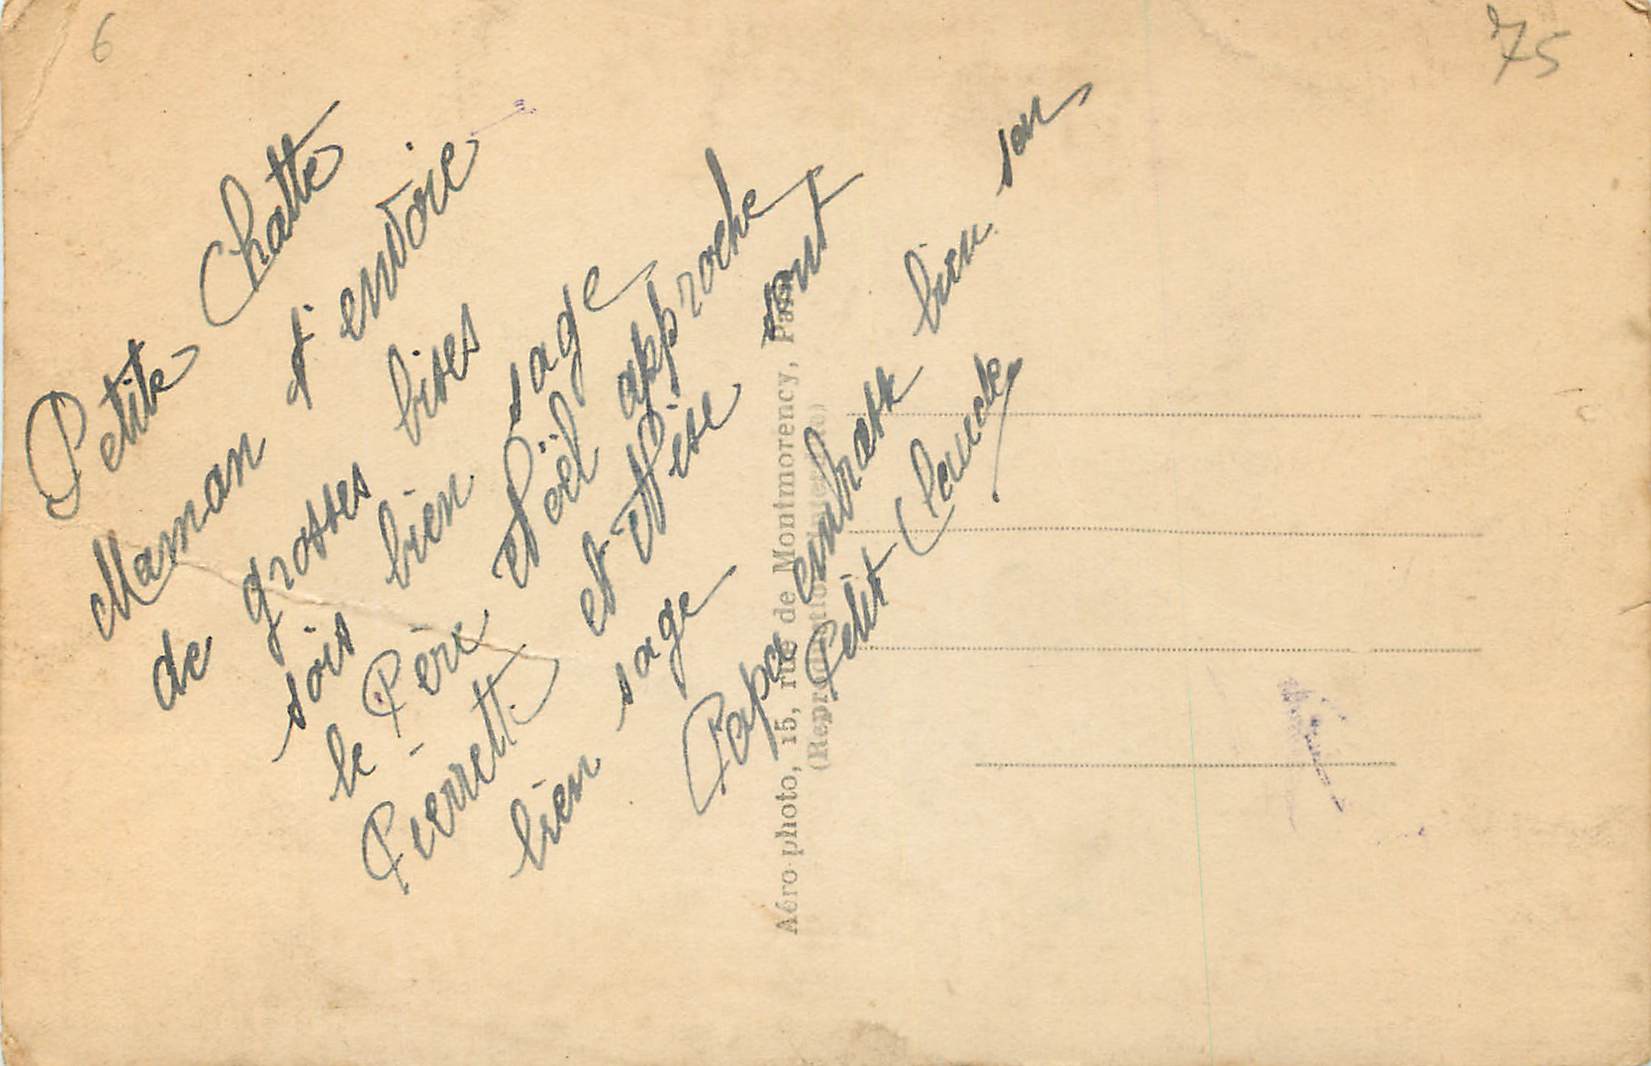 6
75
Petite Chatte
Maman t'envoie
de grosses bises
sois bien sage
le Père Noël approche
Pierrette et Nise sont
bien sage
Papa embrasse bien son
Petit Claude
Aéro-photo, 15, rue de Montmorency, Paris